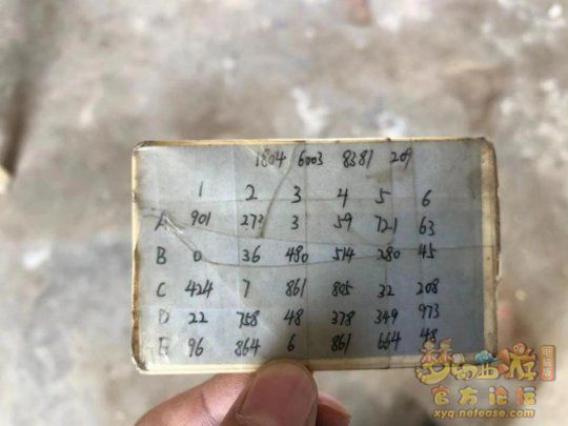 1804 6003 8381 209
1 2 3 4 5 6
A 901 272 3 59 721 63
B 0 36 480 514 280 45
C 424 7 861 805 32 208
D 22 758 48 378 349 973
E 96 864 6 861 664 48
梦幻西游
电脑版
官方论坛
xyq.netease.com